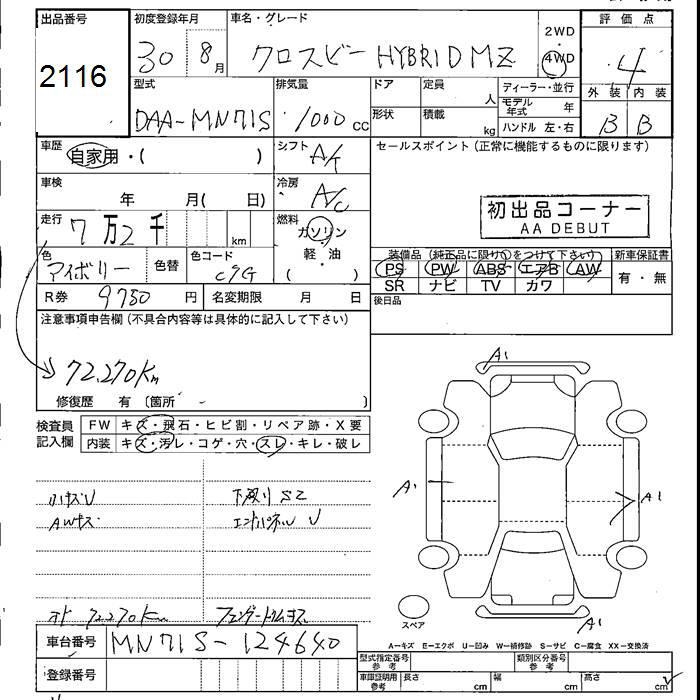 出品番号 初度登録年月 車名・グレード 2WD ・ 4WD 評価点
2116 30 8月 クロスビー HYBRID MZ 4
外装 内装
B B
型式 排気量 ドア 定員 人 ディーラー・並行
DAA-MN71S 1000 cc 形状 積載 kg モデル年式 年
ハンドル 左・右
車歴 自家用・( ) シフト A/t セールスポイント(正常に機能するものに限ります)
車検 年 月( 日) 冷房 A/C
初出品コーナー
AA DEBUT
走行 7万2千 km 燃料 ガソリン
軽・油
( )
色 アイボリー 色替 色コード C9G
装備品(純正品に限り○をつけて下さい) 新車保証書
PS PW ABS エアB AW 有・無
SR ナビ TV カワ
R券 9750円 名変期限 月 日 後日品
注意事項申告欄(不具合内容等は具体的に記入して下さい)
72,270Km
修復歴 有 〔箇所 〕
検査員記入欄 FW キズ・飛石・ヒビ割・リペア跡・X要
内装 キズ・汚レ・コゲ・穴・スレ・キレ・破レ
A1
A1
A1
A1
小キズU 下廻りS2
AWキズ エンドパネルU
スペア
オド 72270Km
A=キズ E=エクボ U=凹み W=補修跡 S=サビ C=腐食 XX=交換済
車台番号 MN71S-124640
型式指定番号参考 類別区分番号参考
登録番号 車庫証明用参考 長さ cm 幅 cm 高さ cm